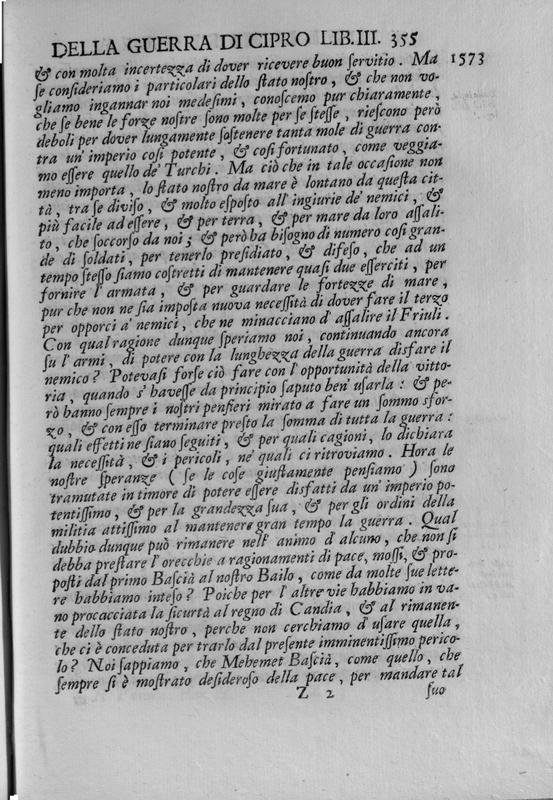 DELLA GUERRA DI CIPRO LIB.III. 355
& con molta incertezza di dover ricevere buon ſervitio. Ma 1573
ſe conſideriamo i particolari dello ſtato noſtro, & che non vo-
gliamo ingannar noi medeſimi, conoſcemo pur chiaramente,
che ſe bene le forze noſtre ſono molte per ſe ſteſſe, rieſcono però
deboli per dover lungamente ſoſtenere tanta mole di guerra con-
tra un' imperio coſi potente, & coſi fortunato, come veggia-
mo eſſere quello de' Turchi. Ma ciò che in tale occaſione non
meno importa, lo ſtato noſtro da mare è lontano da queſta cit-
tà, tra ſe diviſo, & molto eſpoſto all' ingiurie de' nemici, &
più facile ad eſſere, & per terra, & per mare da loro aſſali-
to, che ſoccorſo da noi; & però ha biſogno di numero coſi gran-
de di ſoldati, per tenerlo preſidiato, & difeſo, che ad un
tempo ſteſſo ſiamo coſtretti di mantenere quaſi due eſſerciti, per
fornire l' armata, & per guardare le fortezze di mare,
pur che non ne ſia impoſta nuova neceſſità di dover fare il terzo
per opporci a' nemici, che ne minacciano d' aſſalire il Friuli.
Con qual ragione dunque ſperiamo noi, continuando ancora
ſu l' armi, di potere con la lunghezza della guerra disfare il
nemico? Potevaſi forſe ciò fare con l' opportunità della vitto-
ria, quando s' haveſſe da principio ſaputo ben' uſarla: & pe-
rò hanno ſempre i noſtri penſieri mirato a fare un ſommo sfor-
zo, & con eſſo terminare preſto la ſomma di tutta la guerra:
quali effetti ne ſiano ſeguiti, & per quali cagioni, lo dichiara
la neceſſità, & i pericoli, ne' quali ci ritroviamo. Hora le
noſtre ſperanze (ſe le coſe giuſtamente penſiamo) ſono
tramutate in timore di potere eſſere disfatti da un' imperio po-
tentiſſimo, & per la grandezza ſua, & per gli ordini della
militia attiſſimo al mantenere gran tempo la guerra. Qual
dubbio dunque può rimanere nell' animo d' alcuno, che non ſi
debba preſtare l' orecchie a ragionamenti di pace, moſſi, & pro-
poſti dal primo Baſcià al noſtro Bailo, come da molte ſue lette-
re habbiamo inteſo? Poiche per l' altre vie habbiamo in va-
no procacciata la ſicurtà al regno di Candia, & al rimanen-
te dello ſtato noſtro, perche non cerchiamo d' uſare quella,
che ci è conceduta per trarlo dal preſente imminentiſſimo perico-
lo? Noi ſappiamo, che Mehemet Baſcià, come quello, che
ſempre ſi è moſtrato deſideroſo della pace, per mandare tal
Z 2 ſuo